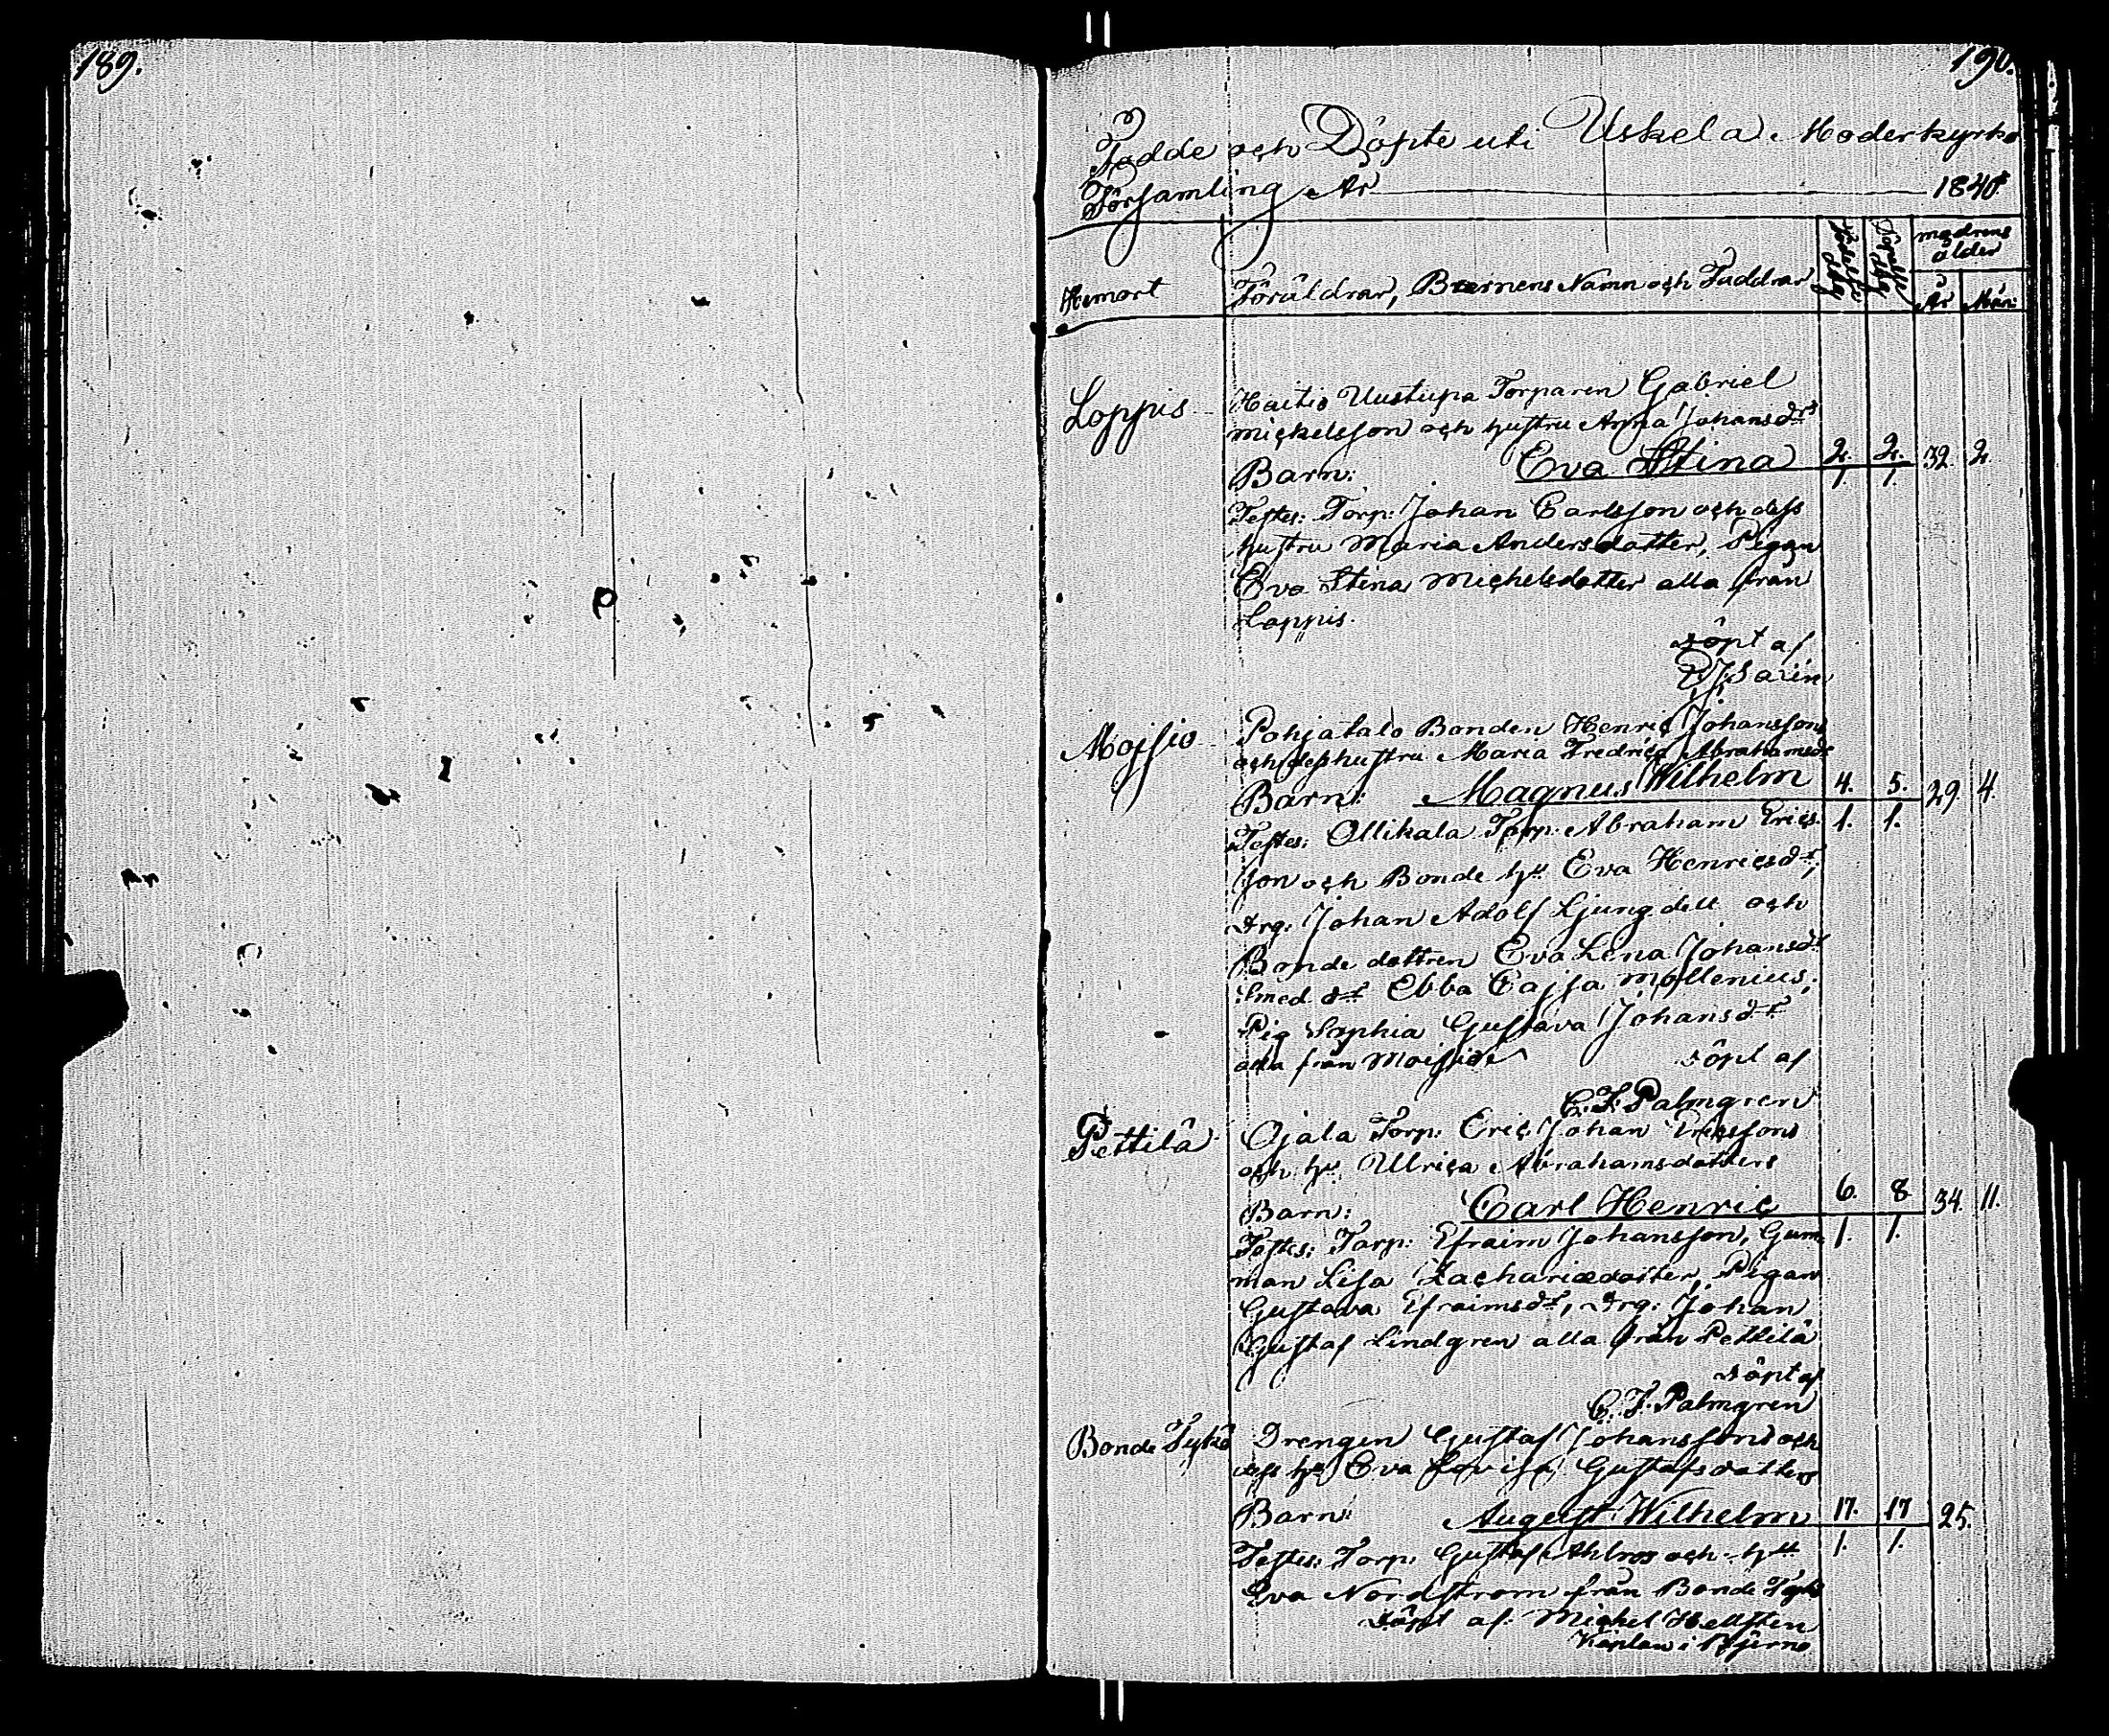 189.
190.
Födde och Döpte uti Uskela Moderkyrko
Församling År 1840
Hemort
Föräldrar, Barnens Namn och Faddrar
Födelse dag
Döpelse dag
modrens ålder
År Mån:
Loppis
Haitio Uustupa Torparen Gabriel
Mickelsson och hustru Anna Johansdrs
Barn: Eva Stina 2. 2. 32. 2.
1. 1.
Testes: Torp: Johan Carlsson och dess
hustru Maria Andersdotter, Pigan
Eva Stina Michelsdotter alla från
Loppis.
döpt af
Moisio
Pohjatalo Bonden Henric Johanssons
och dess hustru Maria Fredrica Abrahamsdr
Barn: Magnus Wilhelm 4. 5. 29 4.
1. 1.
Testes: Ollikala Torp: Abraham Erics
son och Bonde hu Eva Henricsdr,
drg: Johan Adolf Ljungdell och
Bonde dottren Eva Lena Johansdr
Smed dr Ebba Cajsa Mollenius,
Pig Sophia Gustava Johansdr
alla från Moisio döpt af
C. F. Palmgren
Pettilä
Ojala Torp: Eric Johan Ericssons
och hu Ulrica Abrahamsdotters
Barn: Carl Henric 6. 8 34. 11.
1. 1.
Testes: Torp: Efraim Johansson, Gum
man Lisa Zachariædotter, Pigan
Gustava Efraimsdr, drg: Johan
Gustaf Lindgren alla från Pettilä
döpt af
C. F. Palmgren
Bonde Tykö
Drengen Gustaf Johanssons och
dess hu Eva Lovisa Gustafsdotters
Barn: August Wilhelm 17. 17 25.
1. 1.
Testes: Torp: Gustaf Ahlros och hu
Eva Nordström från Bonde Tykö
Döpt af Michel Hellsten
Kaplan i Bjerno